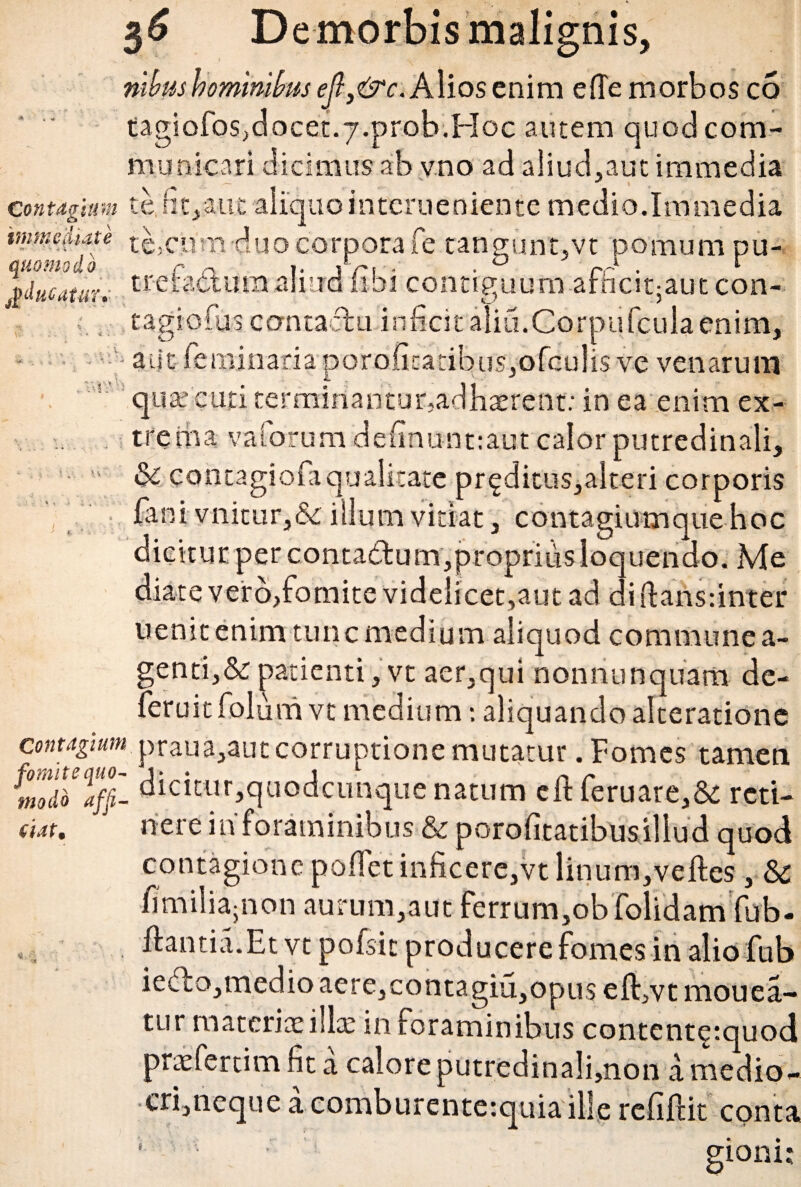 36 De morbis malignis,
nibus hominibus eſt,&c. Alios enim eſſe morbos cō
tagioſos,docet.7.prob.Hoc autem quod com-
municari dicimus ab vno ad aliud,aut immedia
Contagium immediatè quomodo
tè fit,aut aliquo interueniente medio.Immedia
tè,cum duo corpora ſe tangunt,vt pomum pu-
trefactum aliud ſibi contiguum afficit;aut con-
tagioſus contactu inficit aliū.Corpuſcula enim,
aut ſeminaria poroſitatibus,oſculis ve venarum
quæ cuti terminantur,adhærent: in ea enim ex-
trema vaſorum deſinunt:aut calor putredinali,
& contagioſa qualitate prȩditus,alteri corporis
ſani vnitur,& illum vitiat, contagiumque hoc
dicitur per contactum,propriùs loquendo. Me
diate verò,fomite videlicet,aut ad diſtans:inter
uenit enim tunc medium aliquod commune a-
genti,& patienti, vt aer,qui nonnunquam de-
ſeruit ſolùm vt medium: aliquando alteratione
Contagium fomite quo- modo affi- ciat.
praua,aut corruptione mutatur. Fomes tamen
dicitur,quodcunque natum eſt ſeruare,& reti-
nere in foraminibus & poroſitatibus illud quod
contagione poſſet inficere,vt linum,veſtes, &
ſimilia;non aurum,aut ferrum,ob ſolidam ſub-
ſtantiā.Et vt poſsit producere fomes in alio ſub
iecto,medio aere,contagiū,opus eſt,vt mouēa-
tur materiæ illæ in foraminibus contentȩ:quod
præſertim fit à calore putredinali,non à medio-
cri,neque à comburente:quia ille reſiſtit conta
gioni: